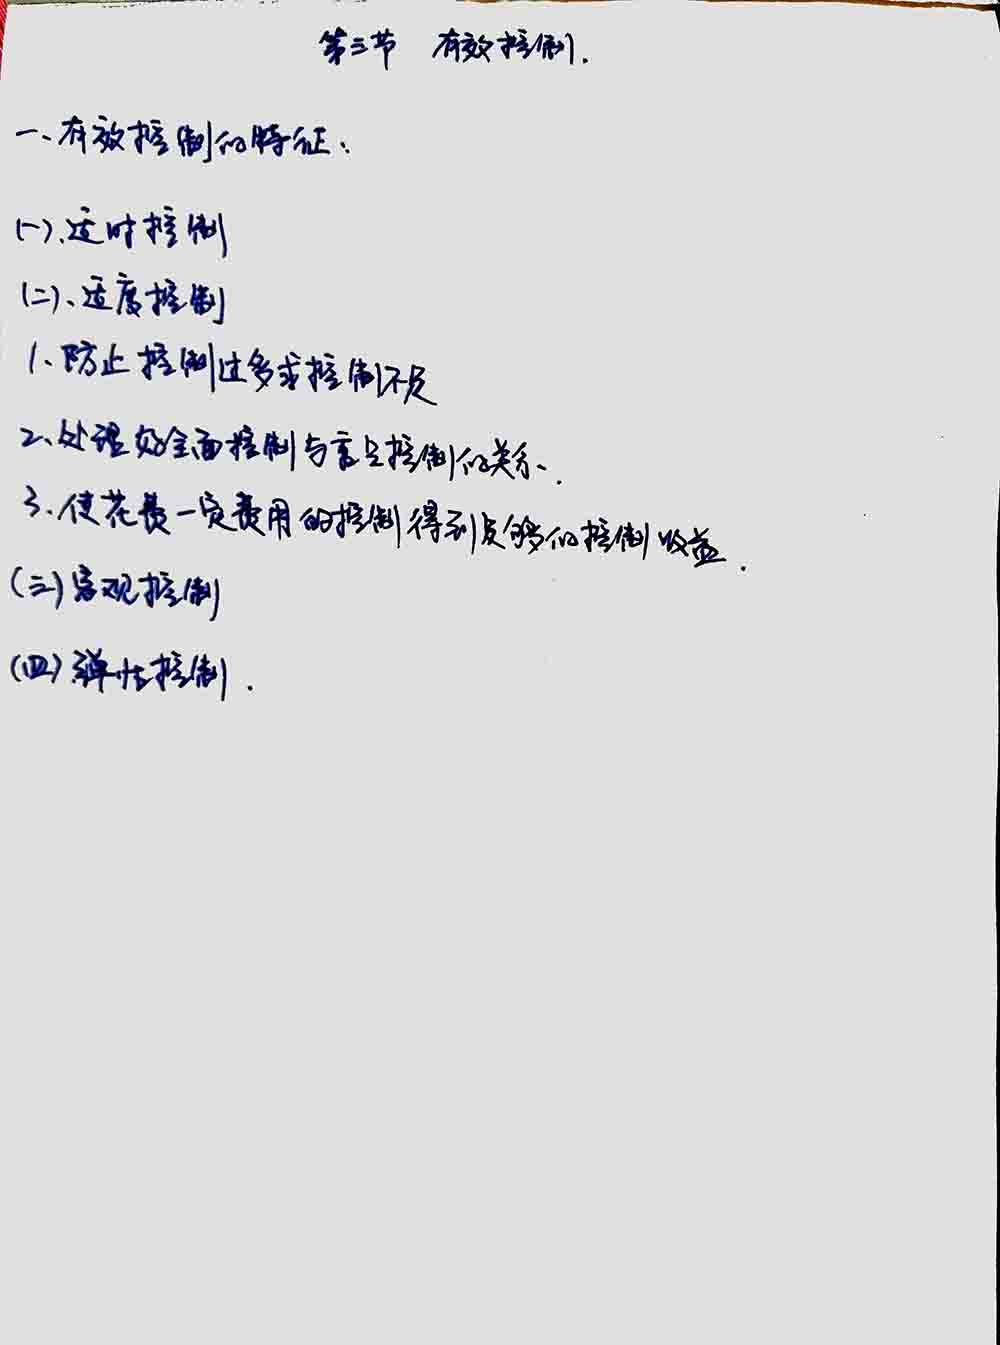 第三节 有效控制.
一、有效控制的特征、
(一)、适时控制
(二)、适度控制
1、防止控制过多或控制不足
2、处理好全面控制与重点控制的关系、.
3、使花费一定费用的控制得到足够的控制收益.
(三)客观控制
(四)弹性控制.